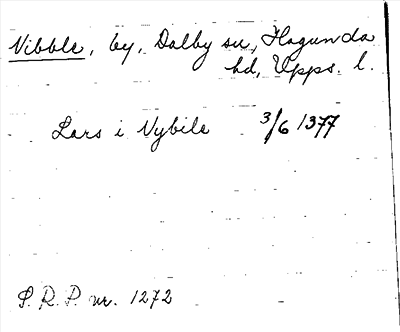 Vibble, by, Dalby sn, Hagunda
hd, Upps. l.
Lars i Vybile 3/6 1377
S.R.P. nr. 1272